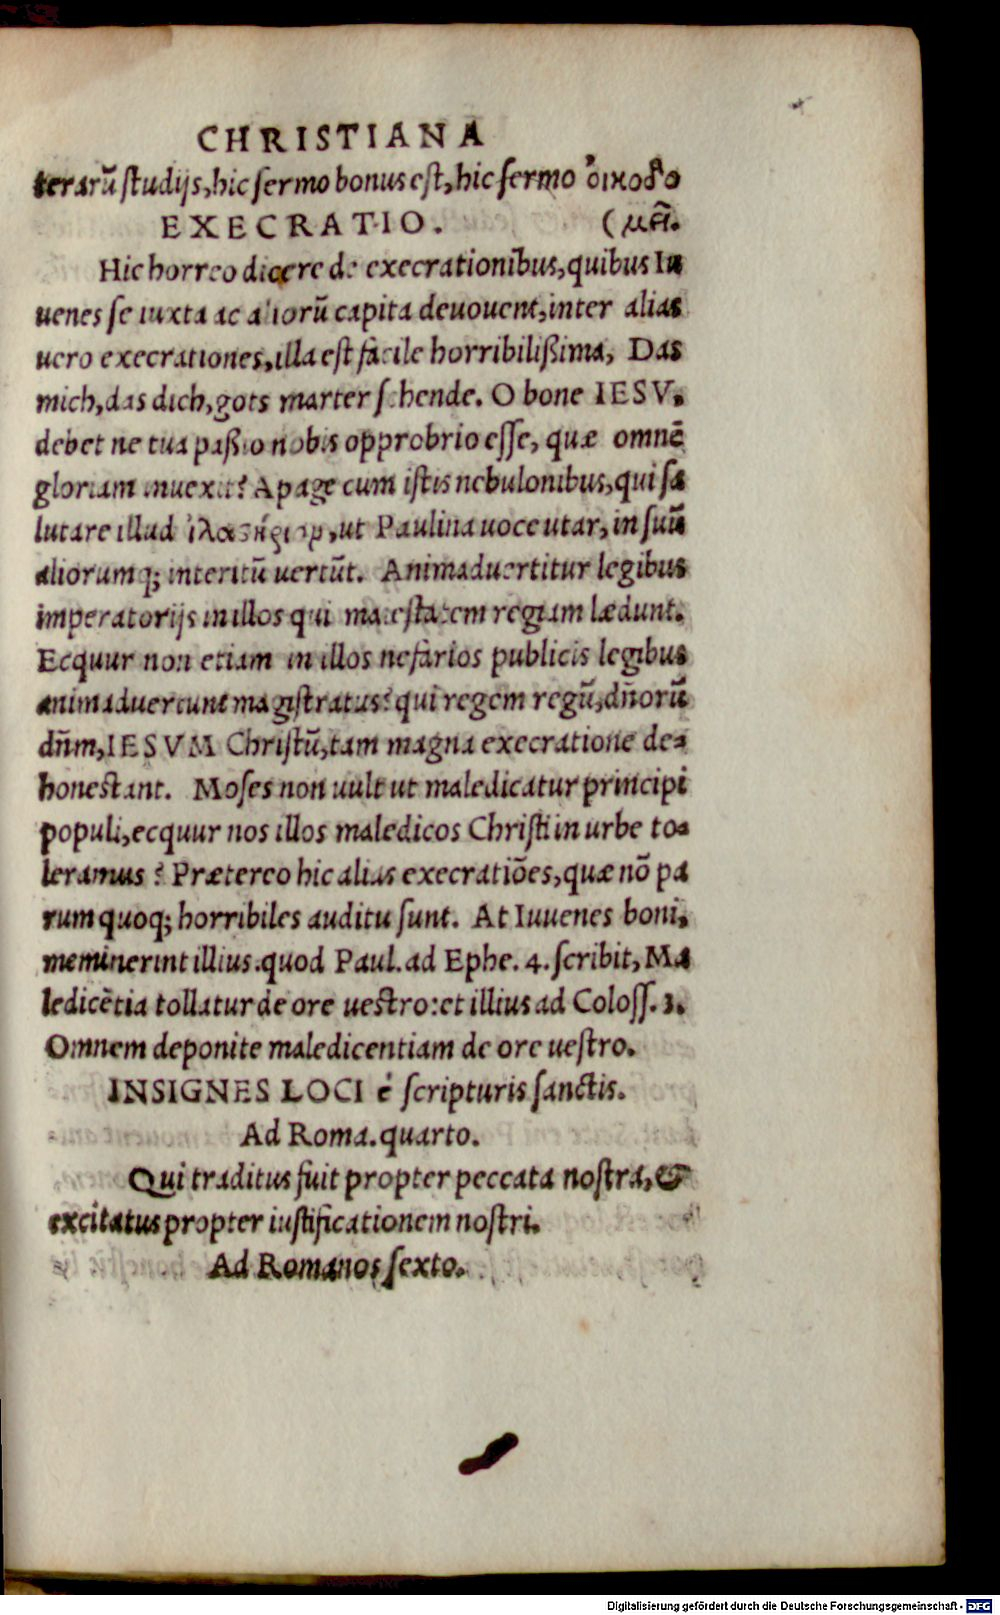 CHRISTIANA
terarū studijs, hic sermo bonus est, hic sermo ὀικοδο
EXECRATIO. (μῆ.
Hic horreo dicere de execrationibus, quibus Iu
uenes se iuxta ac aliorū capita deuouent, inter alias
uero execrationes, illa est facile horribilißima, Das
mich, das dich, gots marter schende. O bone IESV,
debet ne tua paßio nobis opprobrio esse, quæ omnē
gloriam inuexit? Apage cum istis nebulonibus, qui sa
lutare illud ἱλαστήριον, ut Paulina uoce utar, in suū
aliorumq; interitū uertūt. Animaduertitur legibus
imperatorijs in illos qui maiestatem regiam lædunt.
Ecquur non etiam in illos nefarios publicis legibus
animaduertunt magistratus? qui regem regū, dñorū
dñm, IESVM Christū, tam magna execratione de⸗
honestant. Moses non uult ut maledicatur principi
populi, ecquur nos illos maledicos Christi in urbe to⸗
leramus? Prætereo hic alias execratiōes, quæ nō pa
rum quoq; horribiles auditu sunt. At Iuuenes boni,
meminerint illius. quod Paul. ad Ephe. 4. scribit, Ma
ledicētia tollatur de ore uestro: et illius ad Coloss. 3.
Omnem deponite maledicentiam de ore uestro.
INSIGNES LOCI è scripturis sanctis.
Ad Roma. quarto.
Qui traditus fuit propter peccata nostra, &
excitatus propter iustificationem nostri.
Ad Romanos sexto.
Digitalisierung gefördert durch die Deutsche Forschungsgemeinschaft - DFG